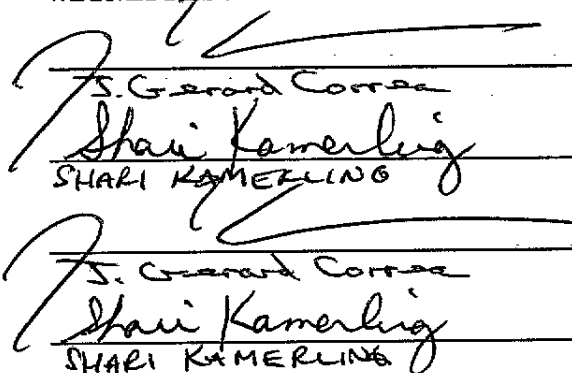 J. Gerard Correa
Shari Kamerling
SHARI KAMERLING
J. Gerard Correa
Shari Kamerling
SHARI KAMERLING